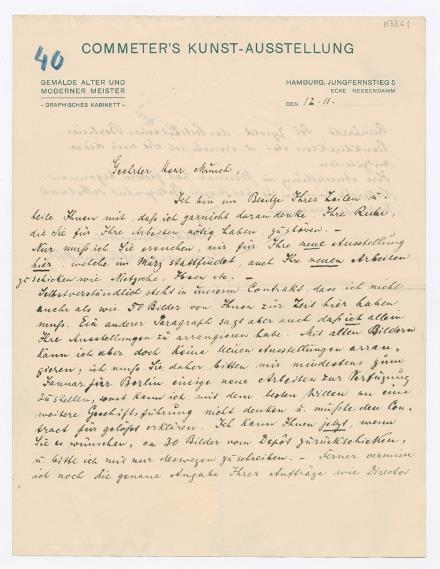 M3861
40
COMMETER'S KUNST-AUSSTELLUNG
GEMÄLDE ALTER UND
MODERNER MEISTER
- GRAPHISCHES KABINETT -
HAMBURG, JUNGFERNSTIEG 5
ECKE REESENDAMM
DEN 12.11.
Geehrter Herr Munch.
Ich bin im Besitze Ihrer Zeilen u.
teile Ihnen mit, daß ich garnicht daran denke, Ihre Ruhe,
die Sie für Ihre Arbeiten nötig haben, zu stören. –
Nur muß ich Sie ersuchen, mir für Ihre neue Ausstellung
hier, welche im März stattfindet, auch Ihre neuen Arbeiten
zu schicken wie Nietzsche, Ibsen etc. –
Selbstverständlich steht in unserem Contrakt, dass ich nicht
mehr als wie 50 Bilder von Ihnen zur Zeit hier haben
muss. Ein anderer Paragraph sagt aber auch daß ich allein
Ihre Ausstellungen zu arrangieren habe. Mit alten Bildern
kann ich aber doch keine neuen Ausstellungen arran-
gieren, ich muß Sie daher bitten mir mindestens zum
Januar für Berlin einige neue Arbeiten zur Verfügung
zu stellen, sonst kann ich mit dem besten Willen an eine
weitere Geschäftsführung nicht denken u. müßte den Con-
tract für gelöst erklären. Ich kann Ihnen jetzt, wenn
Sie es wünschen, ca 30 Bilder vom Depôt zurückschicken,
u. bitte ich mir nur deswegen zu schreiben. – Ferner vermisse
ich noch die genaue Angabe Ihrer Aufträge wie Director